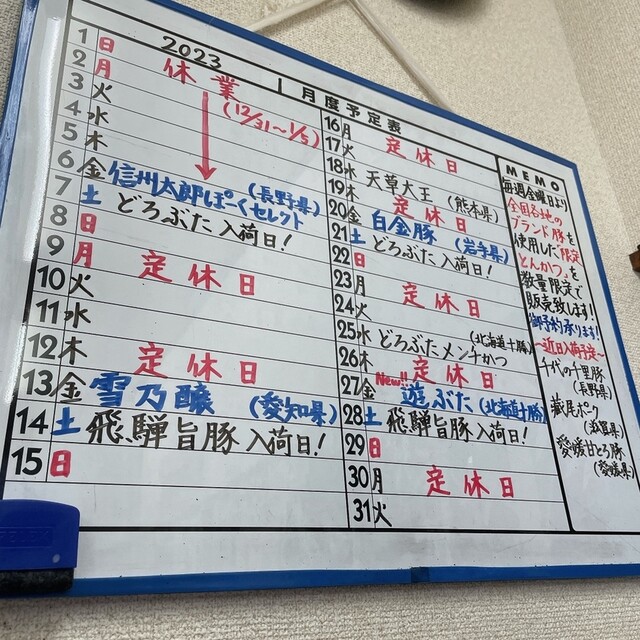 2023 1月度予定表
1 日 休業
2 月 (12/31〜1/5)
3 火
4 水
5 木
6 金 信州太郎ぽーくセレクト (長野県)
7 土 どろぶた入荷日!
8 日
9 月 定休日
10 火
11 水
12 木 定休日
13 金 雪乃醸 (愛知県)
14 土 飛騨旨豚入荷日!
15 日
16 月 定休日
17 火
18 水 天草大王 (熊本県)
19 木 定休日
20 金 白金豚 (岩手県)
21 土 どろぶた入荷日!
22 日
23 月 定休日
24 火
25 水 どろぶたメンチかつ (北海道十勝)
26 木 定休日
27 金 New!! 遊ぶた (北海道十勝)
28 土 飛騨旨豚入荷日!
29 日
30 月 定休日
31 火
MEMO
毎週金曜日より
全国各地の
ブランド豚を
使用した限定
とんかつを
数量限定で
販売致します!
御予約承ります!
〜近日入荷予定〜
千代の千里豚
(長野県)
蔵尾ポーク
(滋賀県)
愛媛甘とろ豚
(愛媛県)